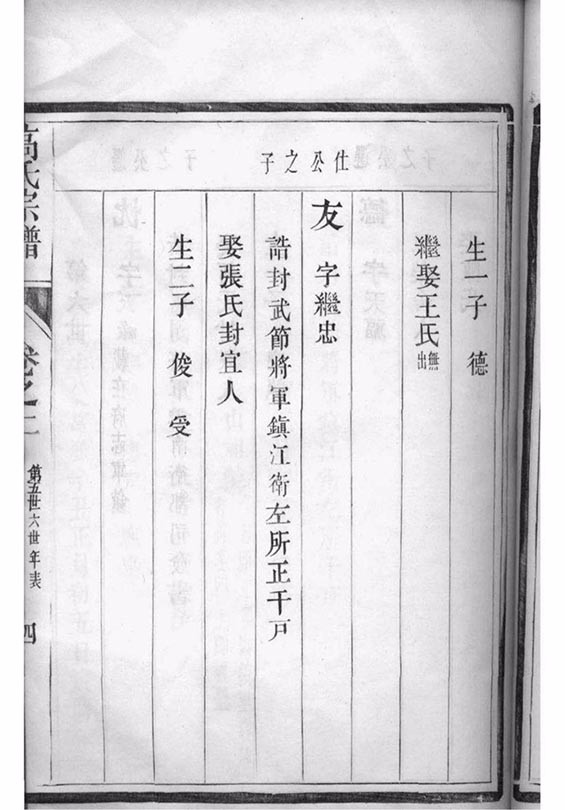 生一子 德
繼娶王氏無出
仕公之子
友 字繼忠
誥封武節將軍鎮江衛左所正千戶
娶張氏封宜人
生二子 俊 受
高氏宗譜
卷之二
第五世六世年表
四